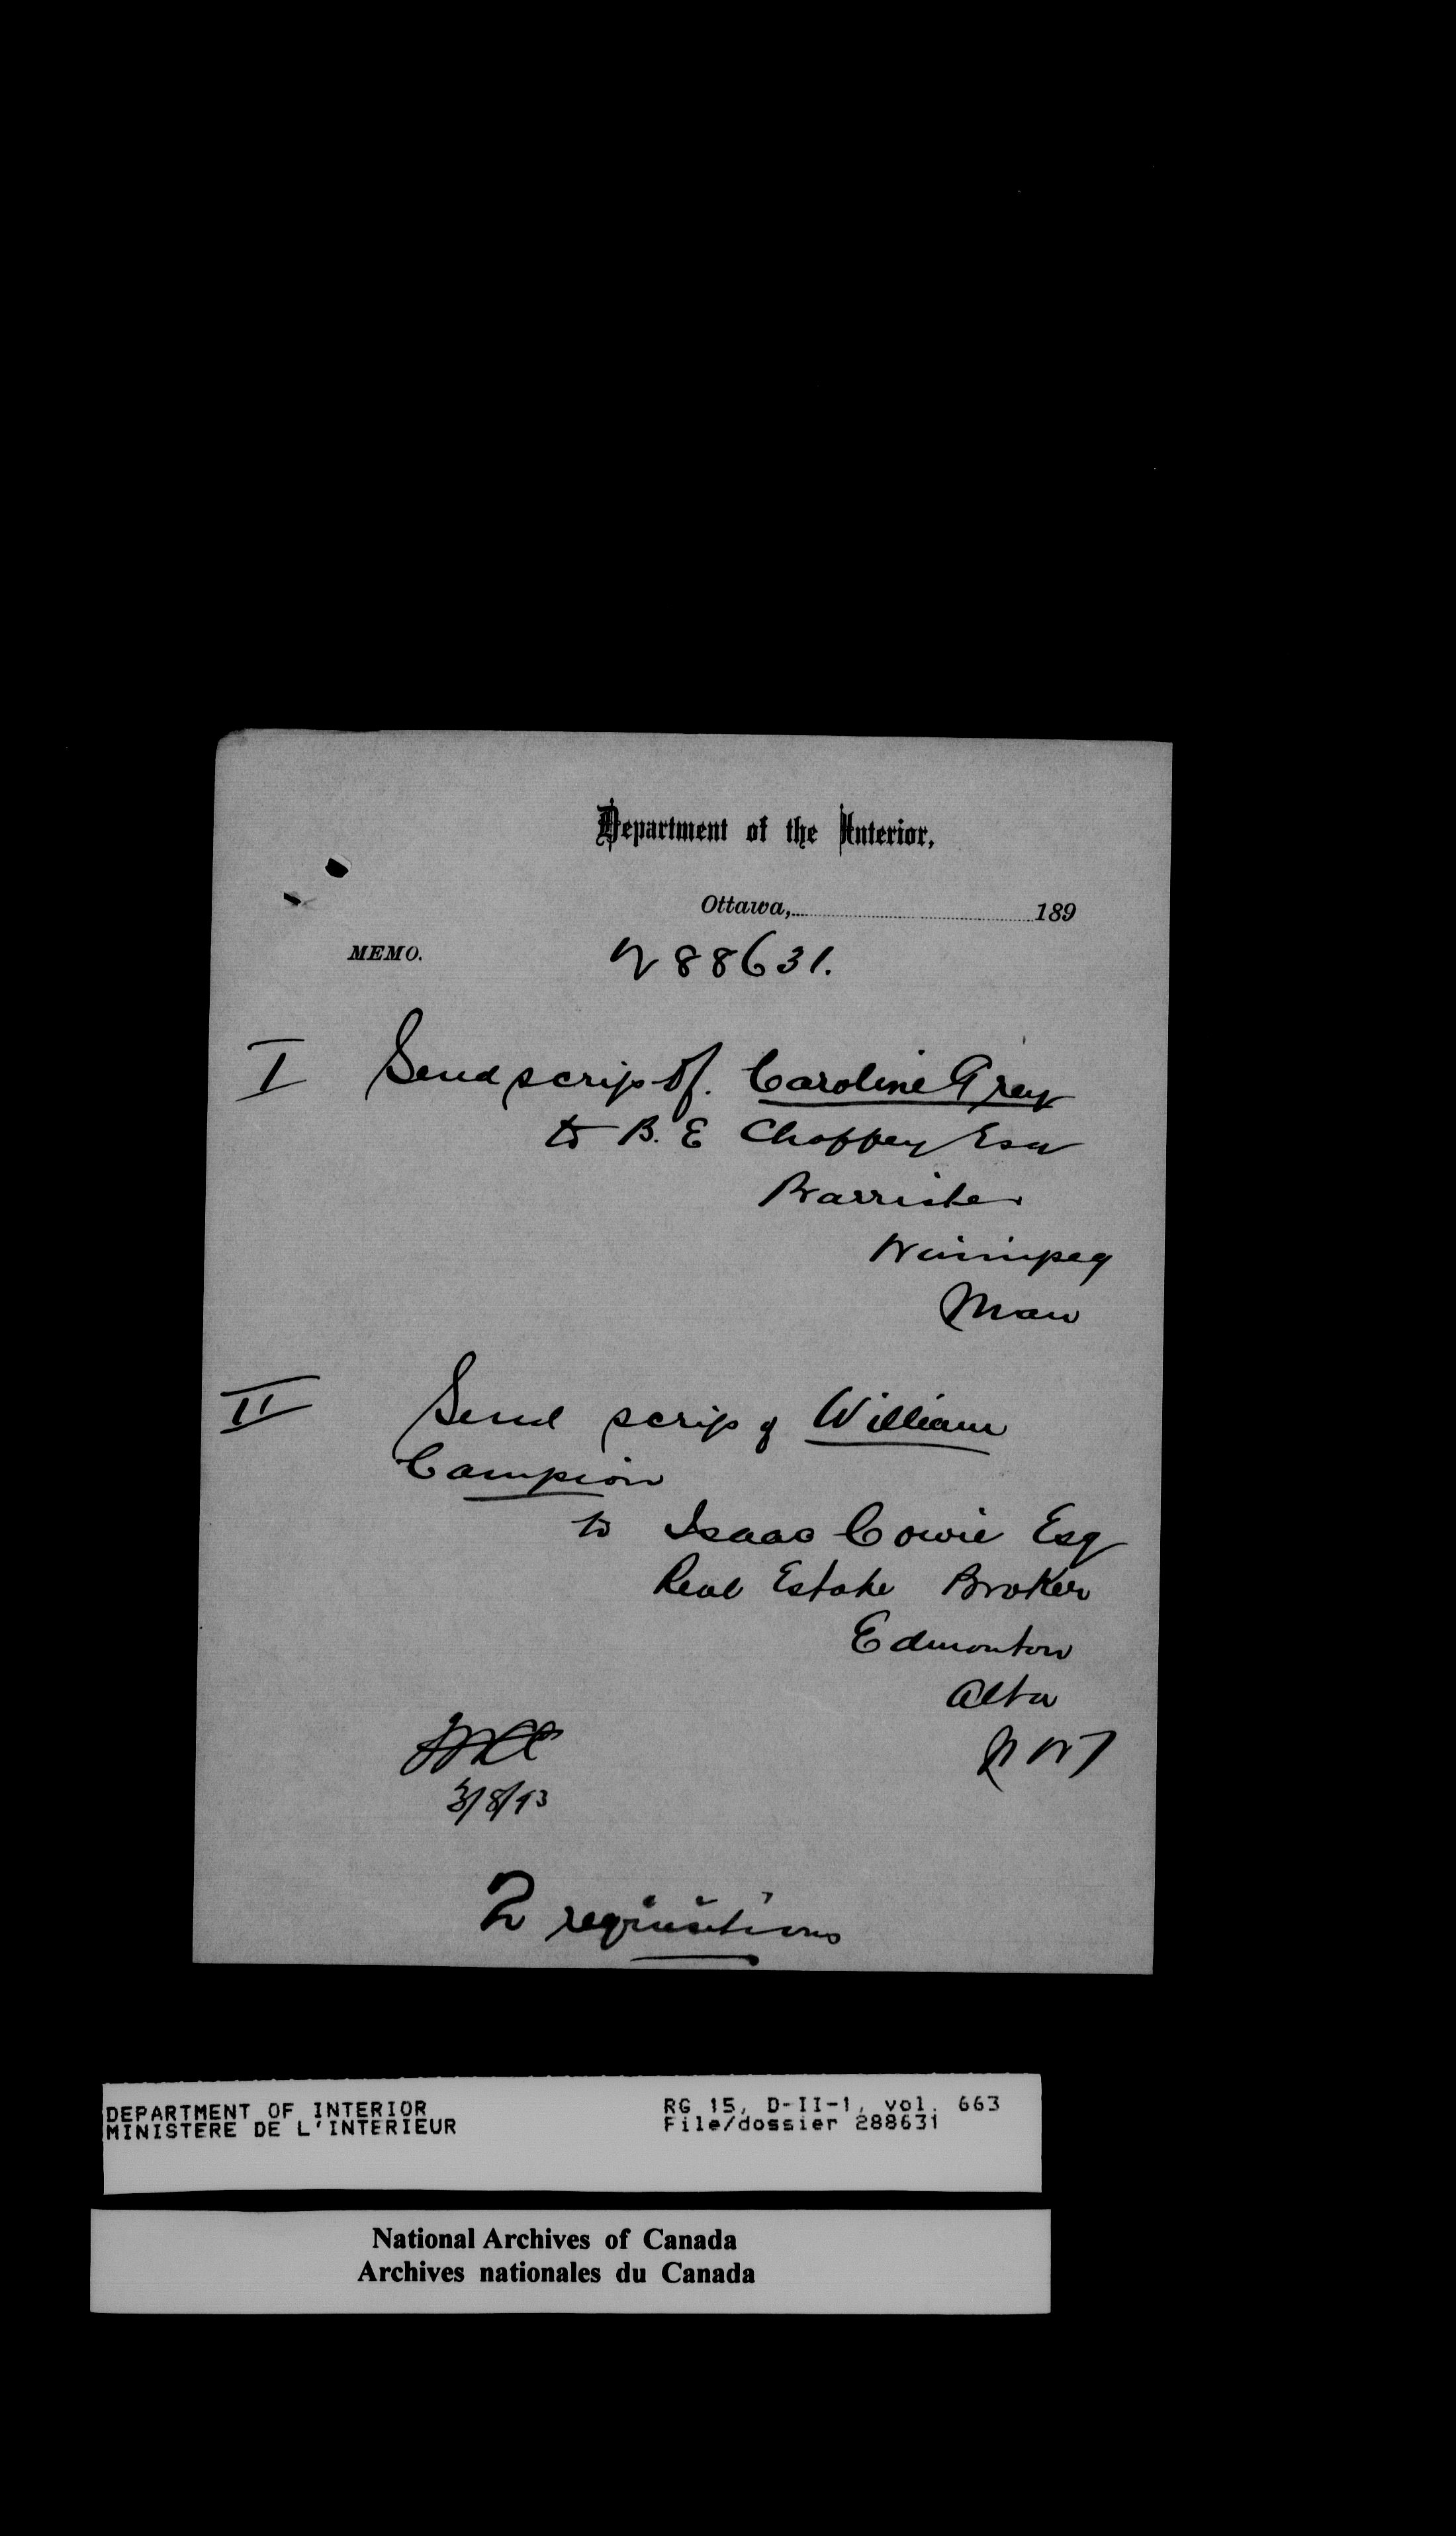 Department of the Interior,
Ottawa, 189
MEMO.
288631.
I Send scrip of. Caroline Grey
to B. E Chaffey Esq
Barrister
Winnipeg
Man
II Send scrip of William
Campion
to Isaac Cowie Esq
Real Estate Broker
Edmonton
Alta
NWT
3/8/93
2 requisitions
DEPARTMENT OF INTERIOR
MINISTERE DE L'INTERIEUR
RG 15, D-II-1, vol. 663
File/dossier 288631
National Archives of Canada
Archives nationales du Canada